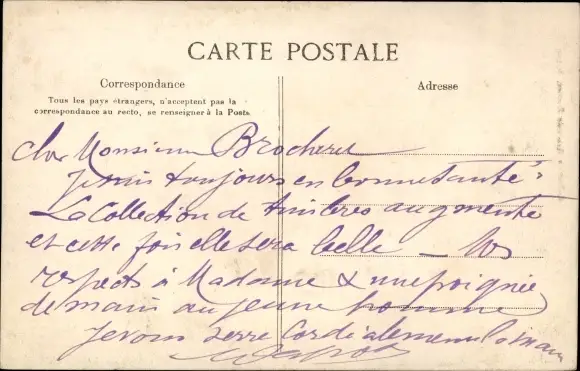 CARTE POSTALE
Correspondance
Adresse
Tous les pays étrangers, n'acceptent pas la
correspondance au recto, se renseigner à la Poste.
cher Monsieur Brocheret
je suis toujours en bonne santé
La Collection de timbres augmente
et cette fois elle sera belle —
respects à Madame & une poignée
de main au jeune homme
je vous serre cordialement la main